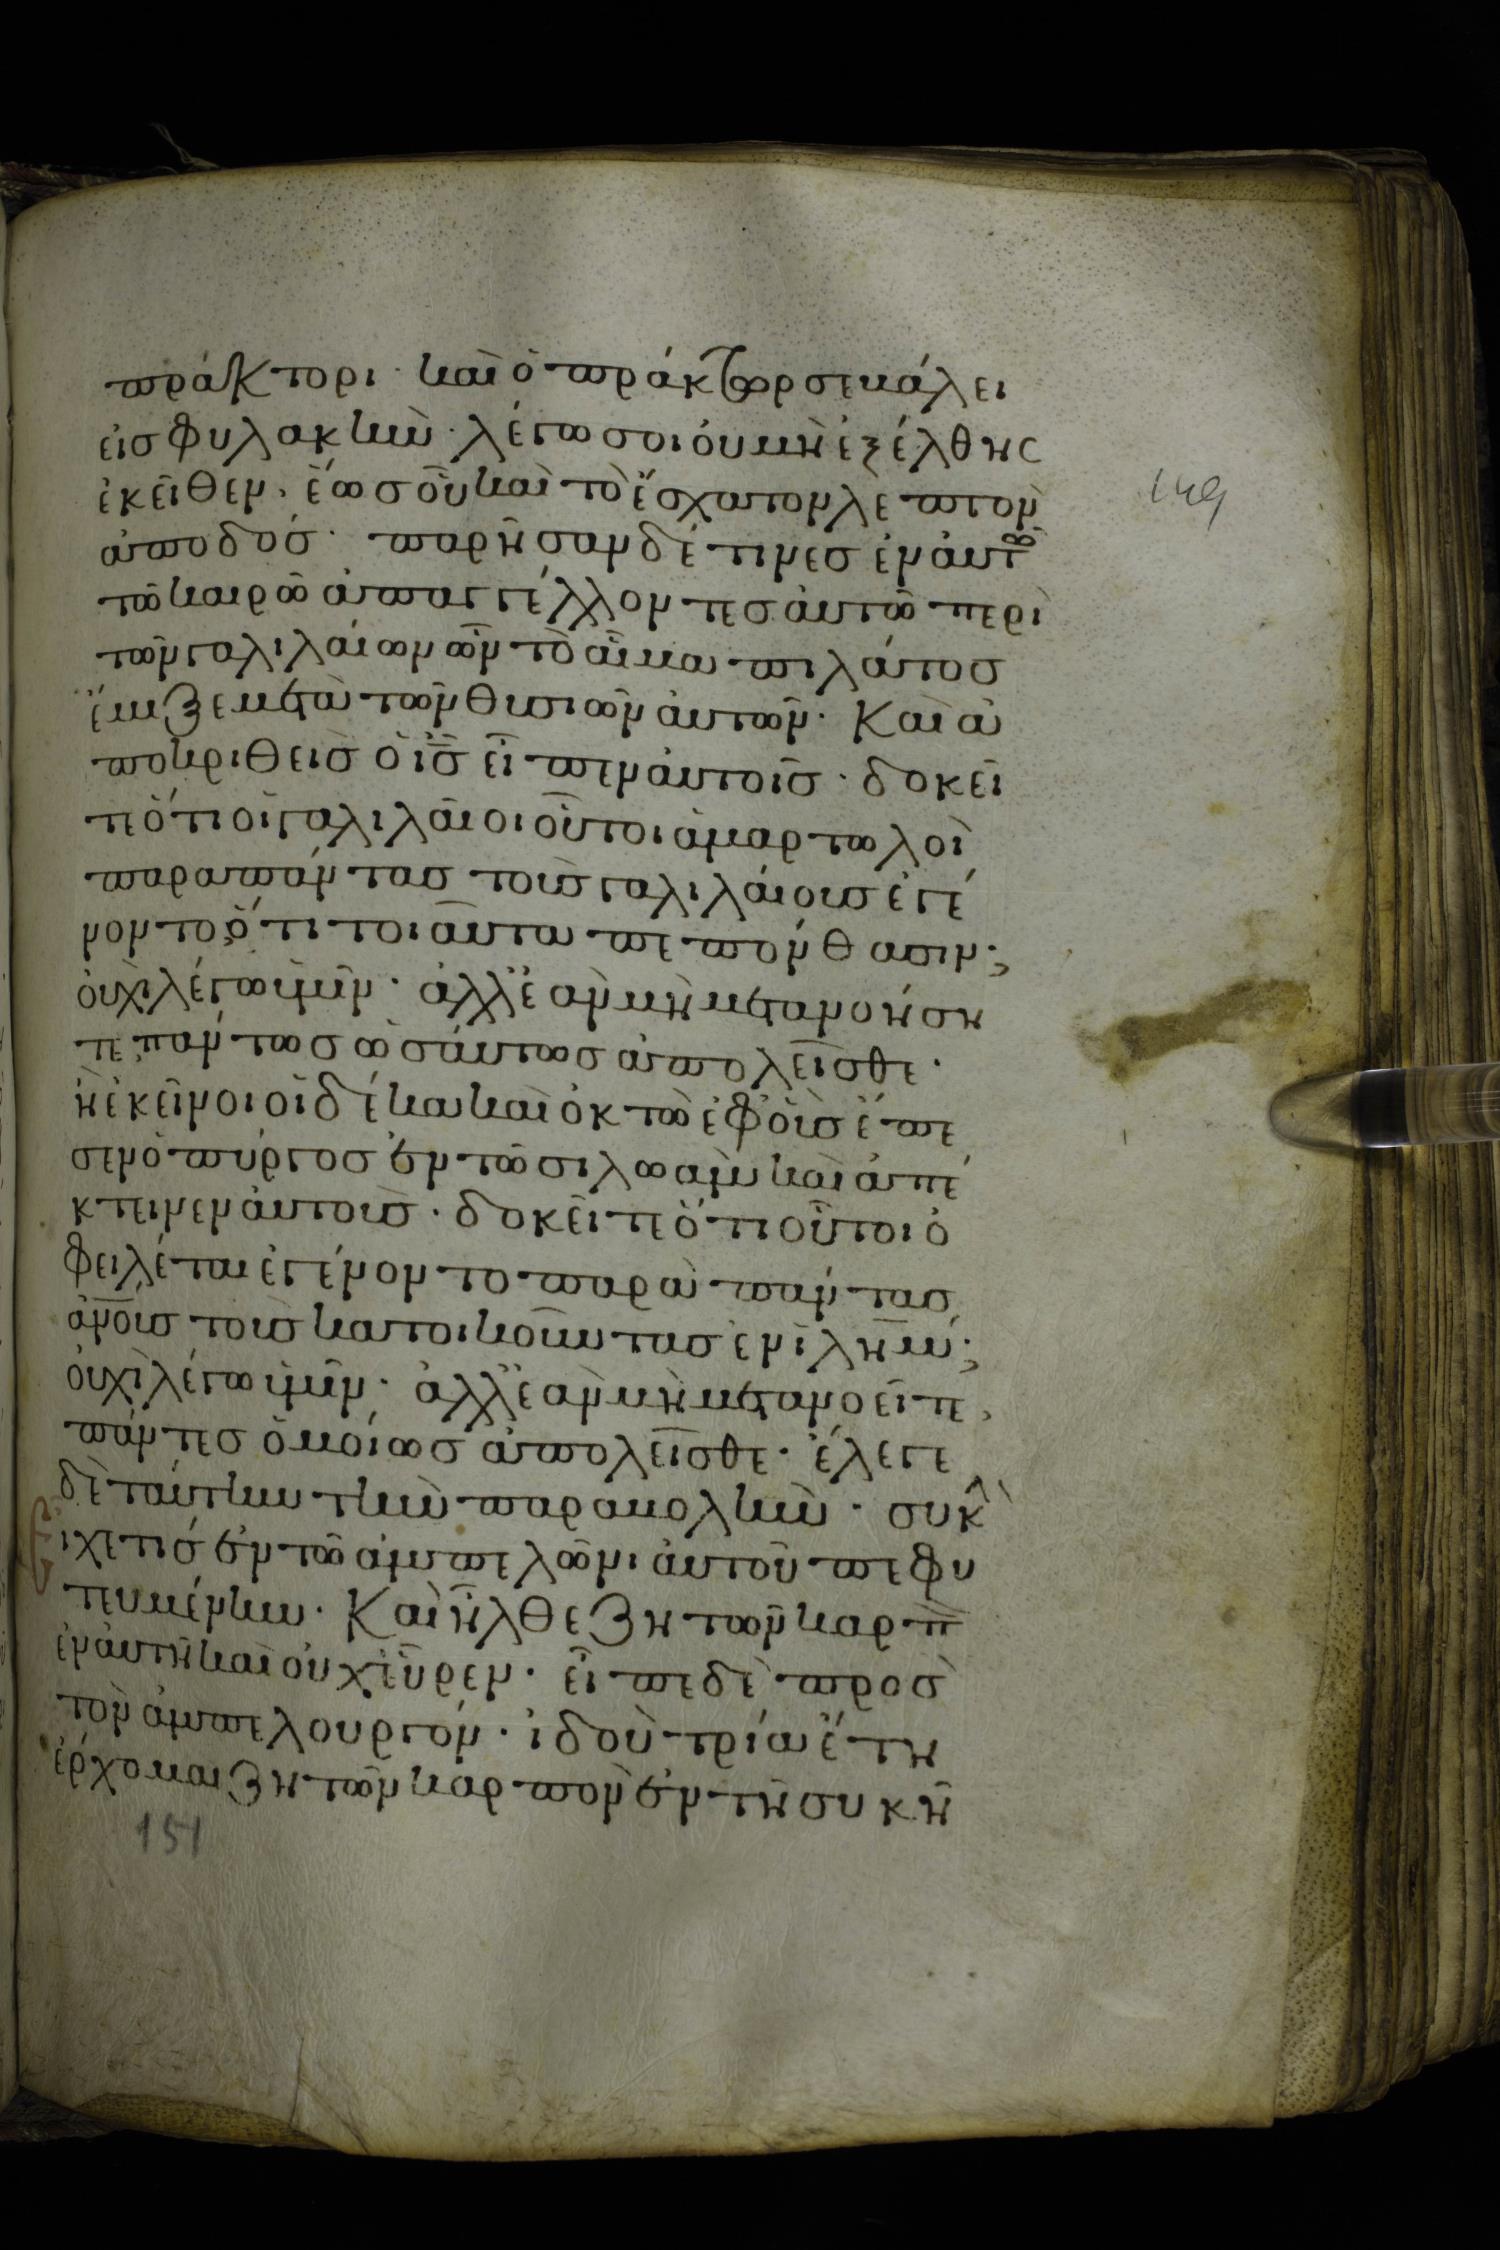 πράκτορι· καὶ ὁ πράκτωρ σε βάλει
εἰς φυλακὴν· λέγω σοι οὐ μὴ ἐξέλθης
ἐκεῖθεν, ἕως οὗ καὶ τὸ ἔσχατον λεπτὸν
ἀποδός· παρῆσαν δέ τινες ἐν αὐτῶ
τῶ καιρῶ ἀπαγγέλλοντες αὐτῶ περὶ
τῶν γαλιλαίων ὧν τὸ αἷμα πιλάτος
ἔμιξε μετὰ τῶν θυσιῶν αὐτῶν· Καὶ ἀ
ποκριθεὶς ὁ ι̅ς̅ εἶπεν αὐτοῖς· δοκεῖ
τε ὅτι οἱ γαλιλαῖοι οὗτοι ἁμαρτωλοὶ
παρα πάντας τοὺς γαλιλαίους ἐγέ
νοντο ὅτι τοιαῦτα πεπόνθασιν;
οὐχὶ λέγω ὑμῖν· ἀλλ' ἐὰν μὴ μετανοήση
τε πάντως ὡσάυτως ἀπολεῖσθε·
ἢ ἐκεῖνοι οἱ δέκα καὶ ὀκτὼ ἐφ' οὓς ἔπε
σεν ὁ πύργος ἐν τῶ σιλωὰμ καὶ ἀπέ
κτεινεν αὐτοὺς· δοκεῖτε ὅτι οὗτοι ὀ
φειλέται ἐγένοντο παρὰ πάντας
α̅ν̅ο̅υ̅ς̅ τοὺς κατοικοῦντας ἐν ἰλη̅μ̅;
οὐχὶ λέγω ὑμῖν· ἀλλ' ἐὰν μὴ μετανοεῖτε,
πάντες ὁμοίως ἀπολεῖσθε· ἔλεγε
δὲ ταύτην τὴν παραβολὴν· συκῆ
ιχέ τις ἐν τῶ ἀμπελῶνι αὐτοῦ πεφυ
τευμένην· Καὶ ἦλθε ζητῶν καρπ
ἐν αὐτῆ καὶ οὐχ' εὗρεν· εἶπε δὲ πρὸς
τὸν ἀμπελουργόν· ἰδοὺ τρία ἔτη
ἔρχομαι ζητῶν καρπὸν ἐν τῆ συκῆ
149
151